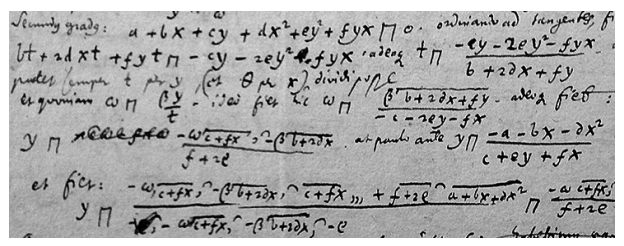 Secundi gradus: a + bx + cy + dx² + ey² + fyx ⊓ 0. ordinando ad tangentes, f
bt + 2dxt + fyt ⊓ - cy - 2ey² - fyx. adeoq t ⊓ -cy - 2ey² - fyx / b + 2dx + fy
semper t per y, (et θ per x) dividi posse
et quoniam ω ⊓ βy/t. ideo fiet hic ω ⊓ β⁀b + 2dx + fy / -c - 2ey - fx. adeoq fiet:
y ⊓ -ω⁀c+fx, ⁀-β⁀b+2dx / f + 2e. at paulo ante y ⊓ -a - bx - dx² / c + ey + fx
et fiet: y ⊓ -ω,⁀c+fx,⁀-β⁀b+2dx,⁀c+fx,,, + f+2e⁀a+bx+dx² / , -ω⁀c+fx,⁀-β⁀b+2dx,⁀-e ⊓ -ω⁀c+fx, / f+2e